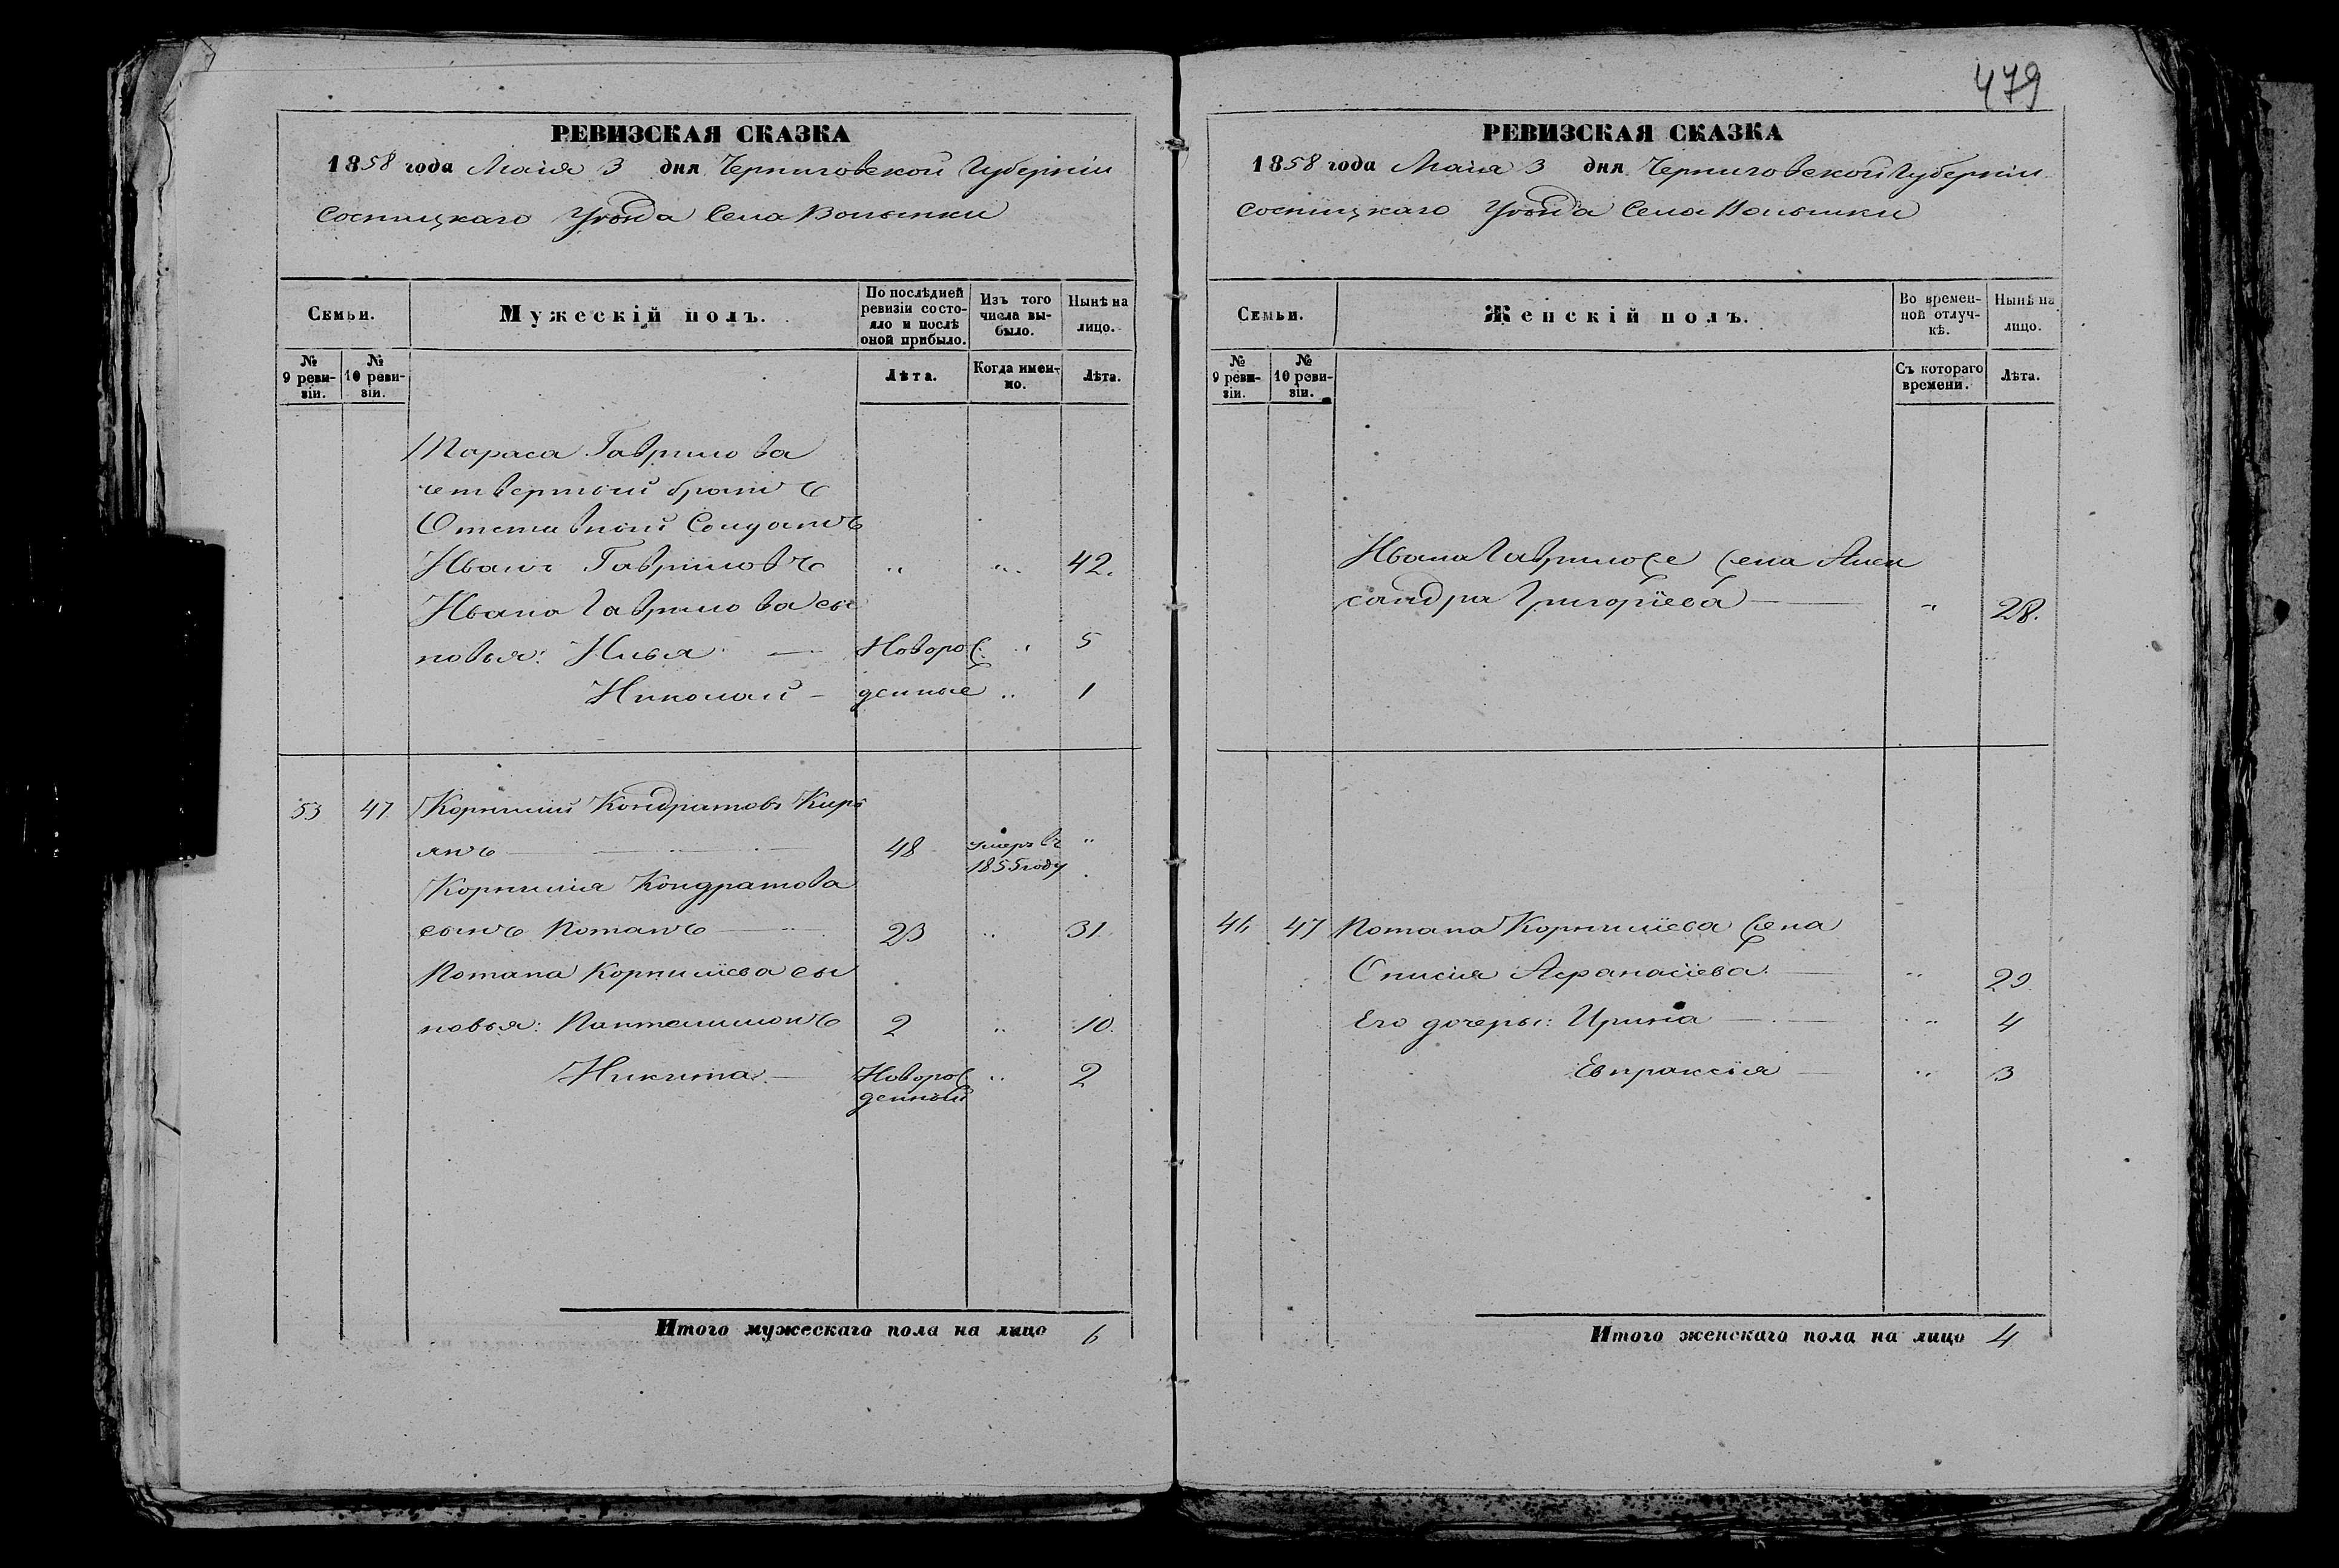 479
РЕВИЗСКАЯ СКАЗКА
1858 года Маія 3 дня Черниговской Губерніи
Сосницкаго Уѣзда Села Волынки
Семьи.
Мужескій полъ.
По послѣдней ревизіи состояло и послѣ оной прибыло.
Изъ того числа выбыло.
Нынѣ на лицо.
№ 9 ревизіи.
№ 10 ревизіи.
Лѣта.
Когда именно.
Лѣта.
Тараса Гаврилова
четвертый братъ
Отставный Солдатъ
Иванъ Гавриловъ " " 42.
Ивана Гаврилова сы
новья: Илья — Новорож " 5
Николай — денные " 1
53 47 Корнилий Кондратовъ Кирі
янъ — 48 умеръ въ 1855 году "
Корнилія Кондратова
сынъ Потапъ — 23 " 31
Потапа Корниліева сы
новья: Пантелимонъ 2 " 10.
Никита — Новорож денный " 2
Итого мужескаго пола на лицо 6
РЕВИЗСКАЯ СКАЗКА
1858 года Маія 3 дня Черниговской Губерніи
Сосницкаго Уѣзда Села Волынки
Семьи.
Женскій полъ.
Во временной отлучкѣ.
Нынѣ на лицо.
№ 9 ревизіи.
№ 10 ревизіи.
Съ котораго времени.
Лѣта.
Ивана Гаврилова жена Алек
сандра Григоріева — " 28.
46 47 Потапа Корниліева жена
Онисія Афанасіева — " 29
Его дочеры: Ирина — " 4
Евпраксія — " 3
Итого женскаго пола на лицо 4